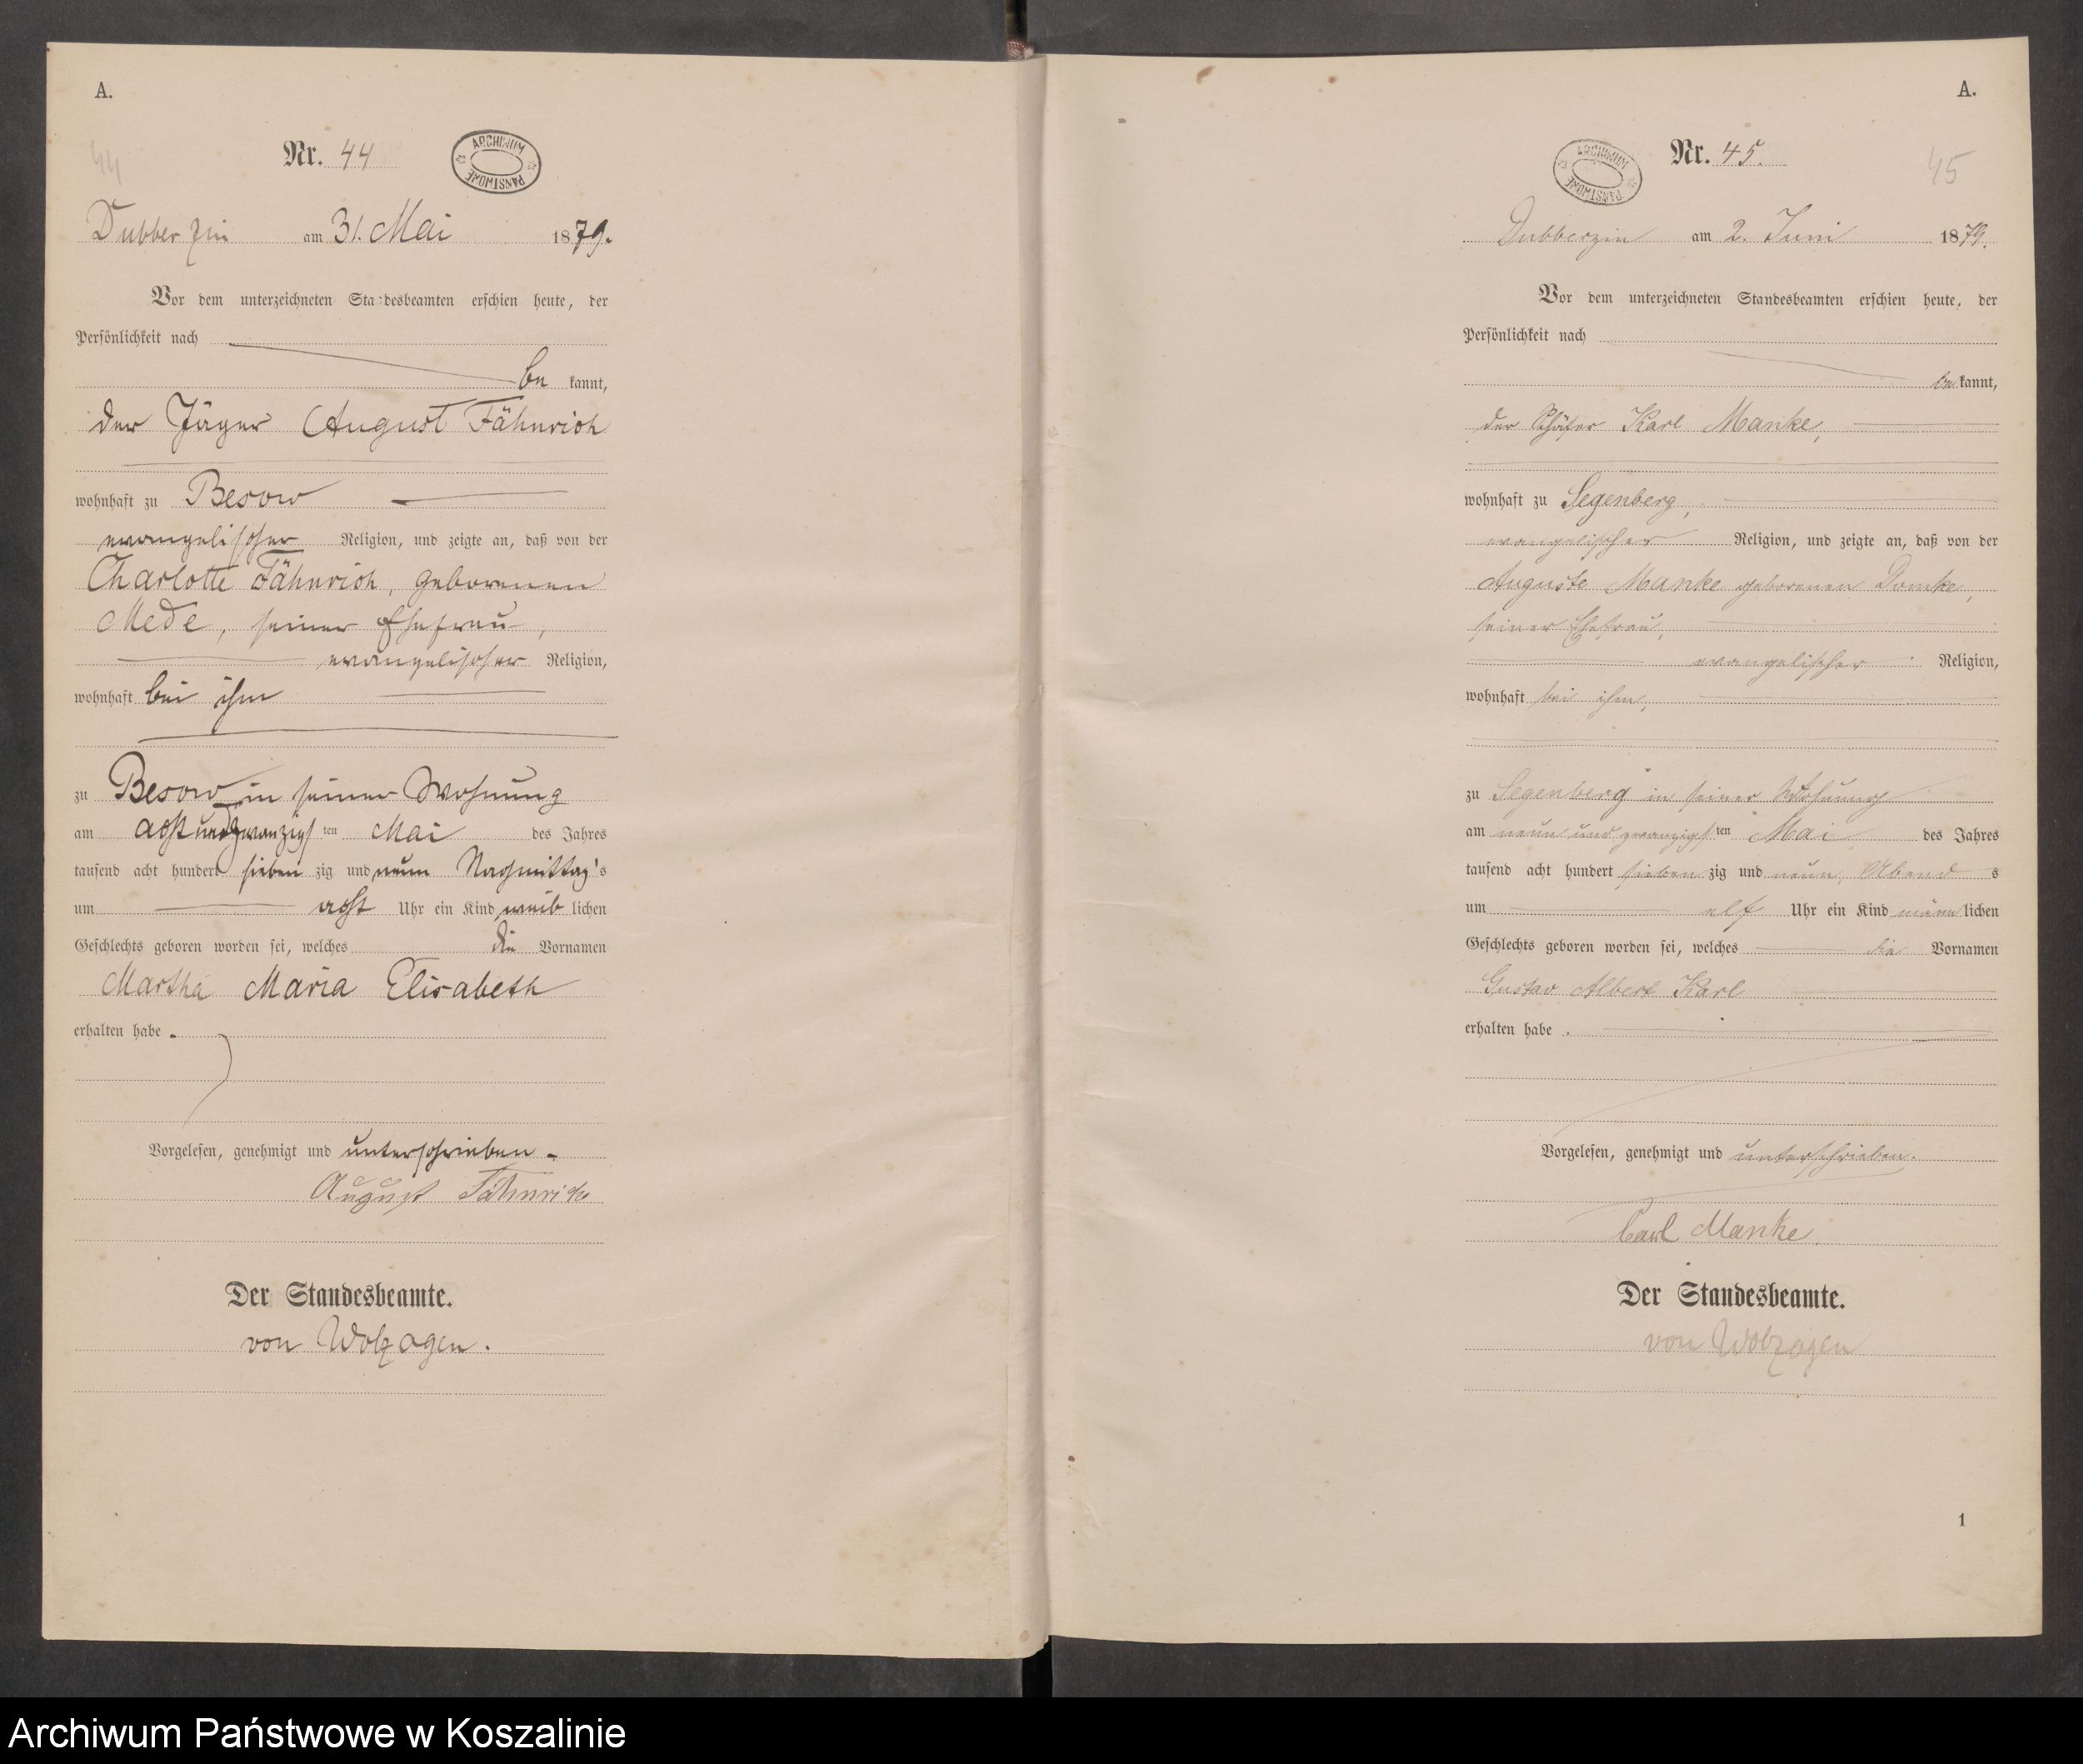 A.
44
Nr. 44
ARCHIWUM PAŃSTWOWE
Dubberzin am 31. Mai 1879.
Vor dem unterzeichneten Standesbeamten erschien heute, der
Persönlichkeit nach
be kannt,
der Jäger August Fähnrich
wohnhaft zu Besow
evangelischer Religion, und zeigte an, daß von der
Charlotte Fähnrich, geborenen
Mede, seiner Ehefrau,
evangelischer Religion,
wohnhaft bei ihm
zu Besow in seiner Wohnung
am acht und zwanzigs ten Mai des Jahres
tausend acht hundert sieben zig und neun Nachmittag's
um acht Uhr ein Kind weib lichen
Geschlechts geboren worden sei, welches die Vornamen
Martha Maria Elisabeth
erhalten habe.
Vorgelesen, genehmigt und unterschrieben.
August Fähnrich
Der Standesbeamte.
von Wolzogen.
A.
45
Nr. 45.
ARCHIWUM PAŃSTWOWE
Dubberzin am 2. Juni 1879.
Vor dem unterzeichneten Standesbeamten erschien heute, der
Persönlichkeit nach
be kannt,
der Schäfer Karl Manke,
wohnhaft zu Segenberg,
evangelischer Religion, und zeigte an, daß von der
Auguste Manke geborenen Domke,
seiner Ehefrau,
evangelischer Religion,
wohnhaft bei ihm,
zu Segenberg in seiner Wohnung
am neun und zwanzigs ten Mai des Jahres
tausend acht hundert sieben zig und neun, Abend s
um elf Uhr ein Kind männ lichen
Geschlechts geboren worden sei, welches die Vornamen
Gustav Albert Karl
erhalten habe.
Vorgelesen, genehmigt und unterschrieben.
Carl Manke.
Der Standesbeamte.
von Wolzogen
1
Archiwum Państwowe w Koszalinie